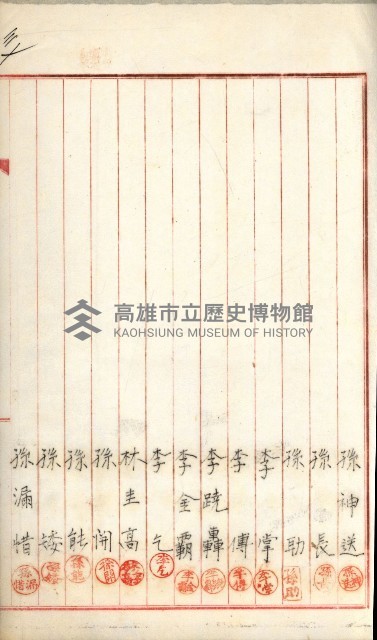 孫神送
孫長
孫助
李掌
李傳
李蹺轟
李全霸
李乞
林圭高
孫開
孫能
孫矮
孫漏惜
高雄市立歷史博物館
KAOHSIUNG MUSEUM OF HISTORY